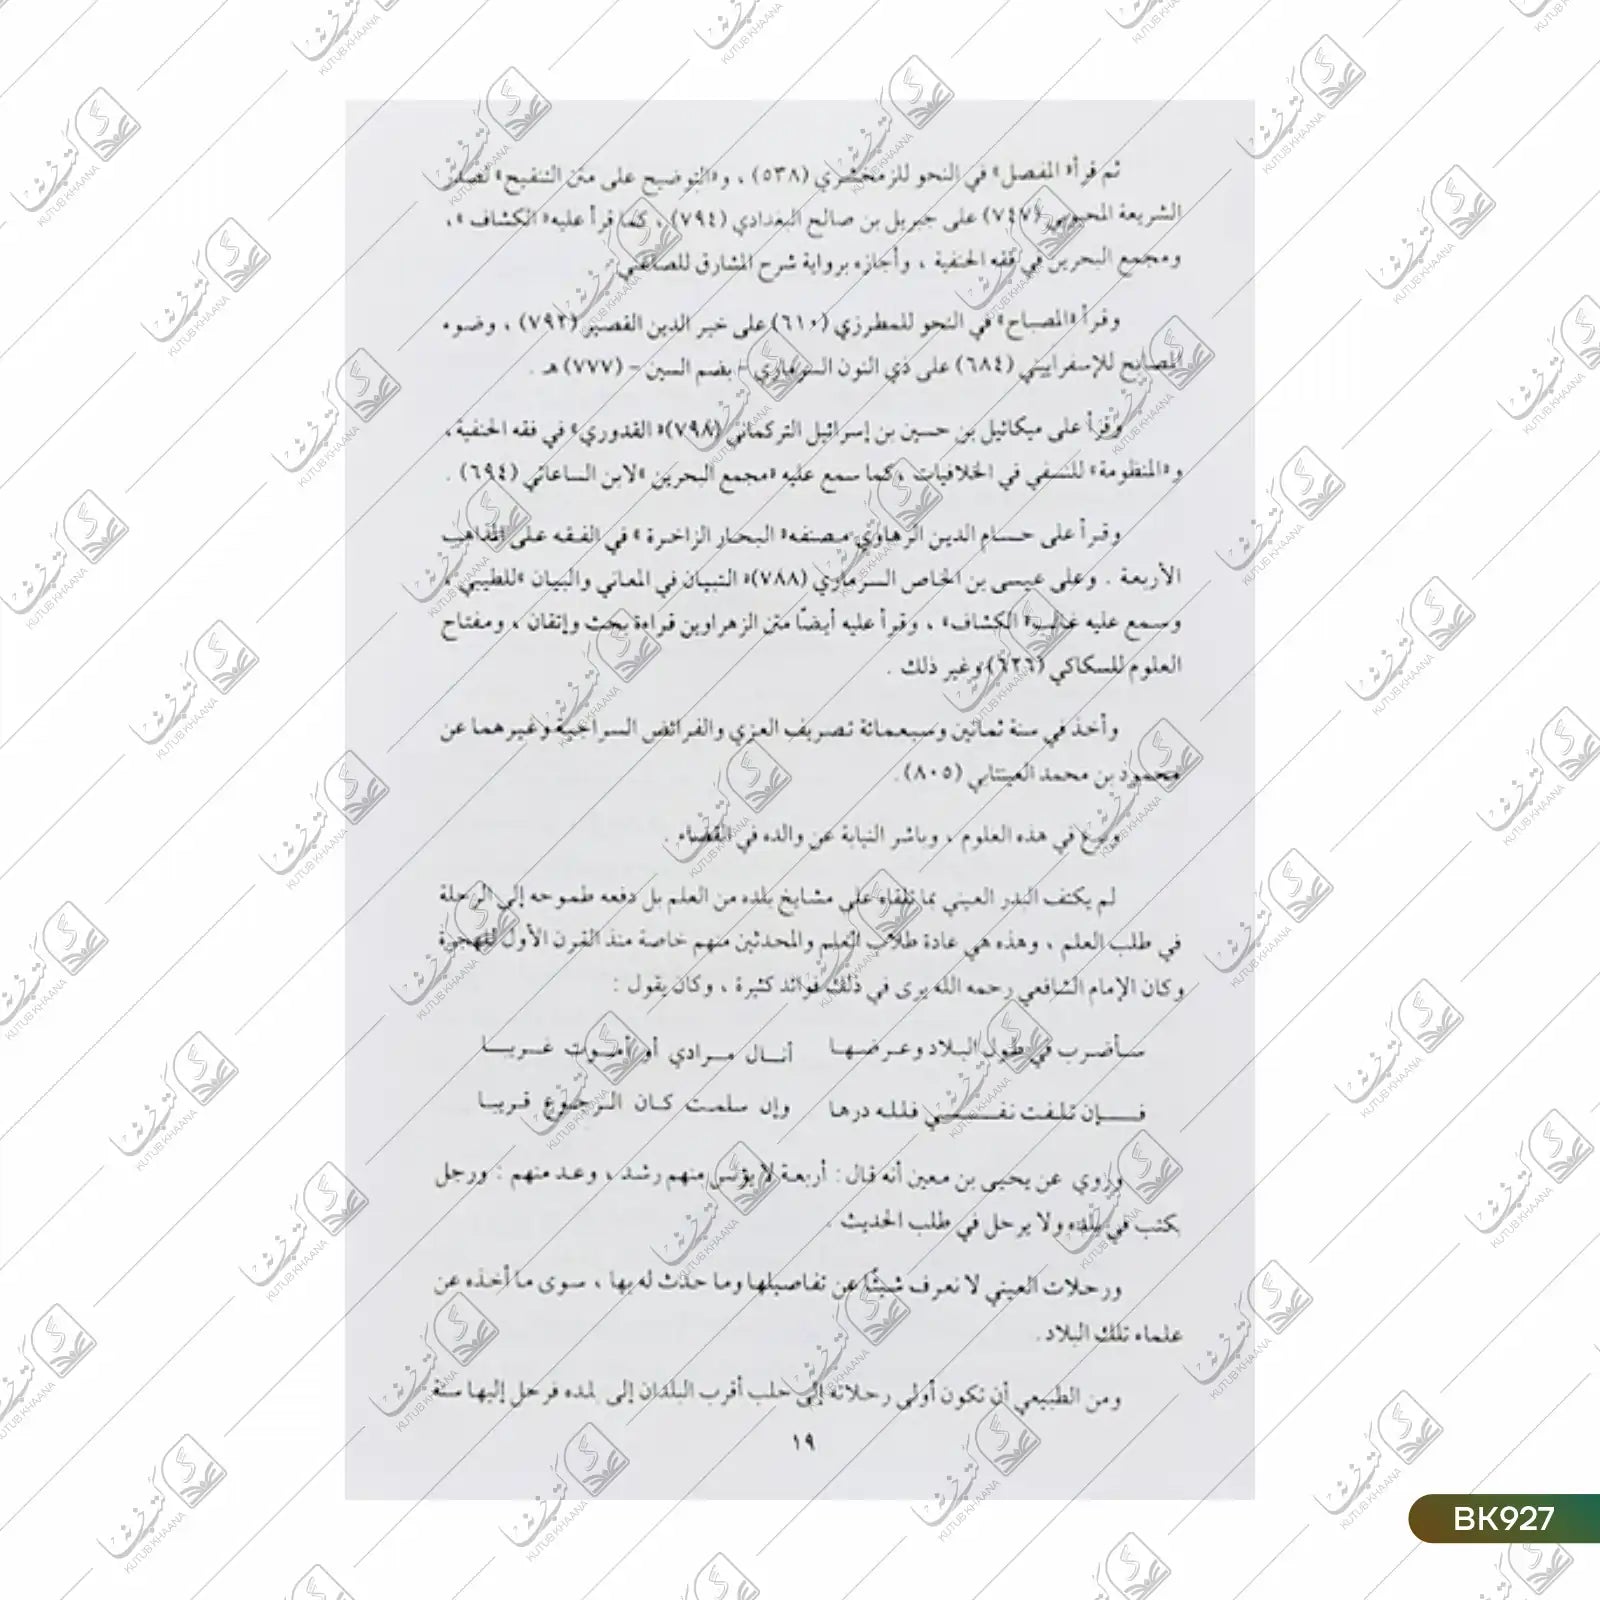 ثم قرأ« المفصل» في النحو للزمخشري (٥٣٨) ، و«التوضيح على متن التنقيح» لصدر
الشريعة المحبوبي (٧٤٧) على جبريل بن صالح البغدادي (٧٩٤) ، كما قرأ عليه« الكشاف » ،
ومجمع البحرين في فقه الحنفية ، وأجازه برواية شرح المشارق للصاغني .
وقرأ «المصباح» في النحو للمطرزي (٦١٠) على خير الدين القصير (٧٩٢) ، وضوء
المصابيح للإسفراييني (٦٨٤) على ذي النون السرماري – بضم السين – (٧٧٧) هـ .
وقرأ على ميكائيل بن حسين بن إسرائيل التركماني (٧٩٨)« القدوري» في فقه الحنفية ،
و«المنظومة» للنسفي في الخلافيات وكما سمع عليه «مجمع البحرين »لابن الساعاتي (٦٩٤) .
وقرأ على حسام الدين الرهاوي مصنفه« البحار الزاخرة » في الفقه على المذاهب
الأربعة . وعلى عيسى بن الخاص السرماري (٧٨٨)« التبيان في المعاني والبيان »للطيبي ،
وسمع عليه غالب« الكشاف» ، وقرأ عليه أيضًا متن الزهراوين قراءة بحث وإتقان ، ومفتاح
العلوم للسكاكي (٦٢٦) وغير ذلك .
وأخذ في سنة ثمانين وسبعمائة تصريف العزي والفرائض السراجية وغيرهما عن
محمود بن محمد العينتابي (٨٠٥) .
وبرع في هذه العلوم ، وباشر النيابة عن والده في القضاء .
لم يكتف البدر العيني بما تلقاه على مشايخ بلده من العلم بل دفعه طموحه إلى الرحلة
في طلب العلم ، وهذه هي عادة طلاب العلم والمحدثين منهم خاصة منذ القرن الأول للهجرة
وكان الإمام الشافعي رحمه الله يرى في ذلك فوائد كثيرة ، وكان يقول :
سأضرب في طول البلاد وعرضها أنال مرادي أو أموت غريبا
فإن تلفت نفسي فلله درها وإن سلمت كان الرجوع قريبا
وروي عن يحيى بن معين أنه قال : أربعة لا يؤنس منهم رشد ، وعد منهم : ورجل
يكتب في بلده ولا يرحل في طلب الحديث .
ورحلات العيني لا نعرف شيئًا عن تفاصيلها وما حدث له بها ، سوى ما أخذه عن
علماء تلك البلاد .
ومن الطبيعي أن تكون أولى رحلاته إلى حلب أقرب البلدان إلى بلده فرحل إليها سنة
١٩
BK927